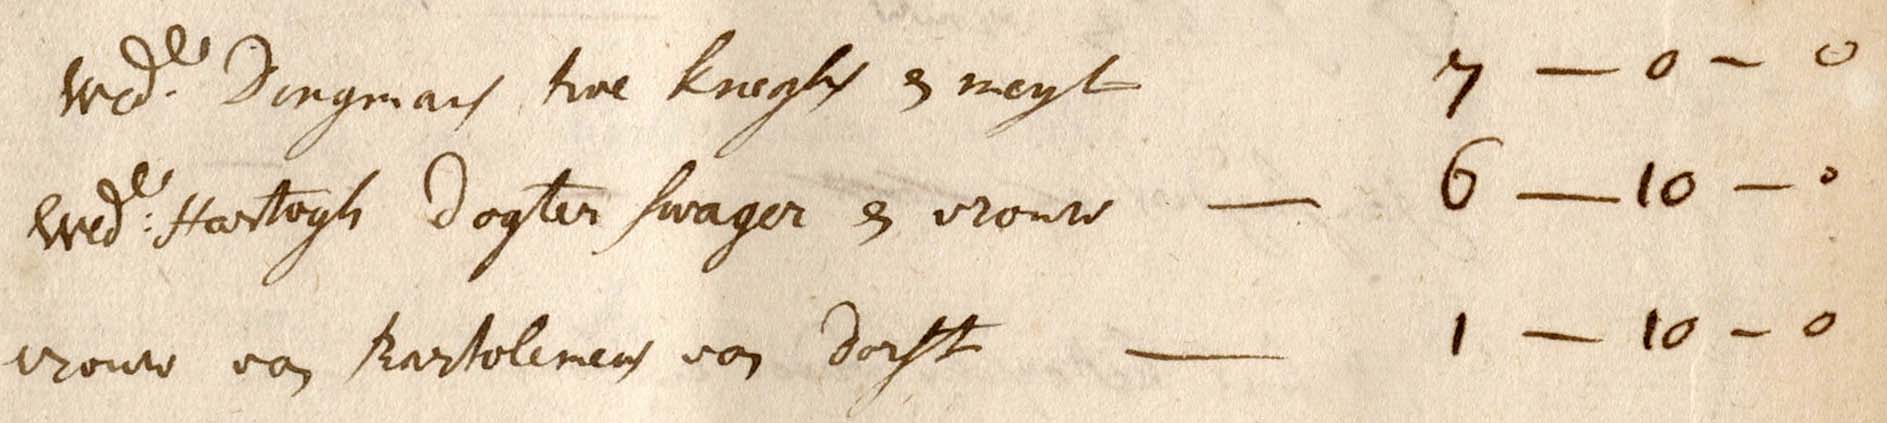 Wed.e Dingmans twe kneghs en meyt 7 — 0 — 0
Wed:e Hartogh Dogter swager en vrouw — 6 — 10 — 0
vrouw van Bartolemeus van Dorst — 1 — 10 — 0